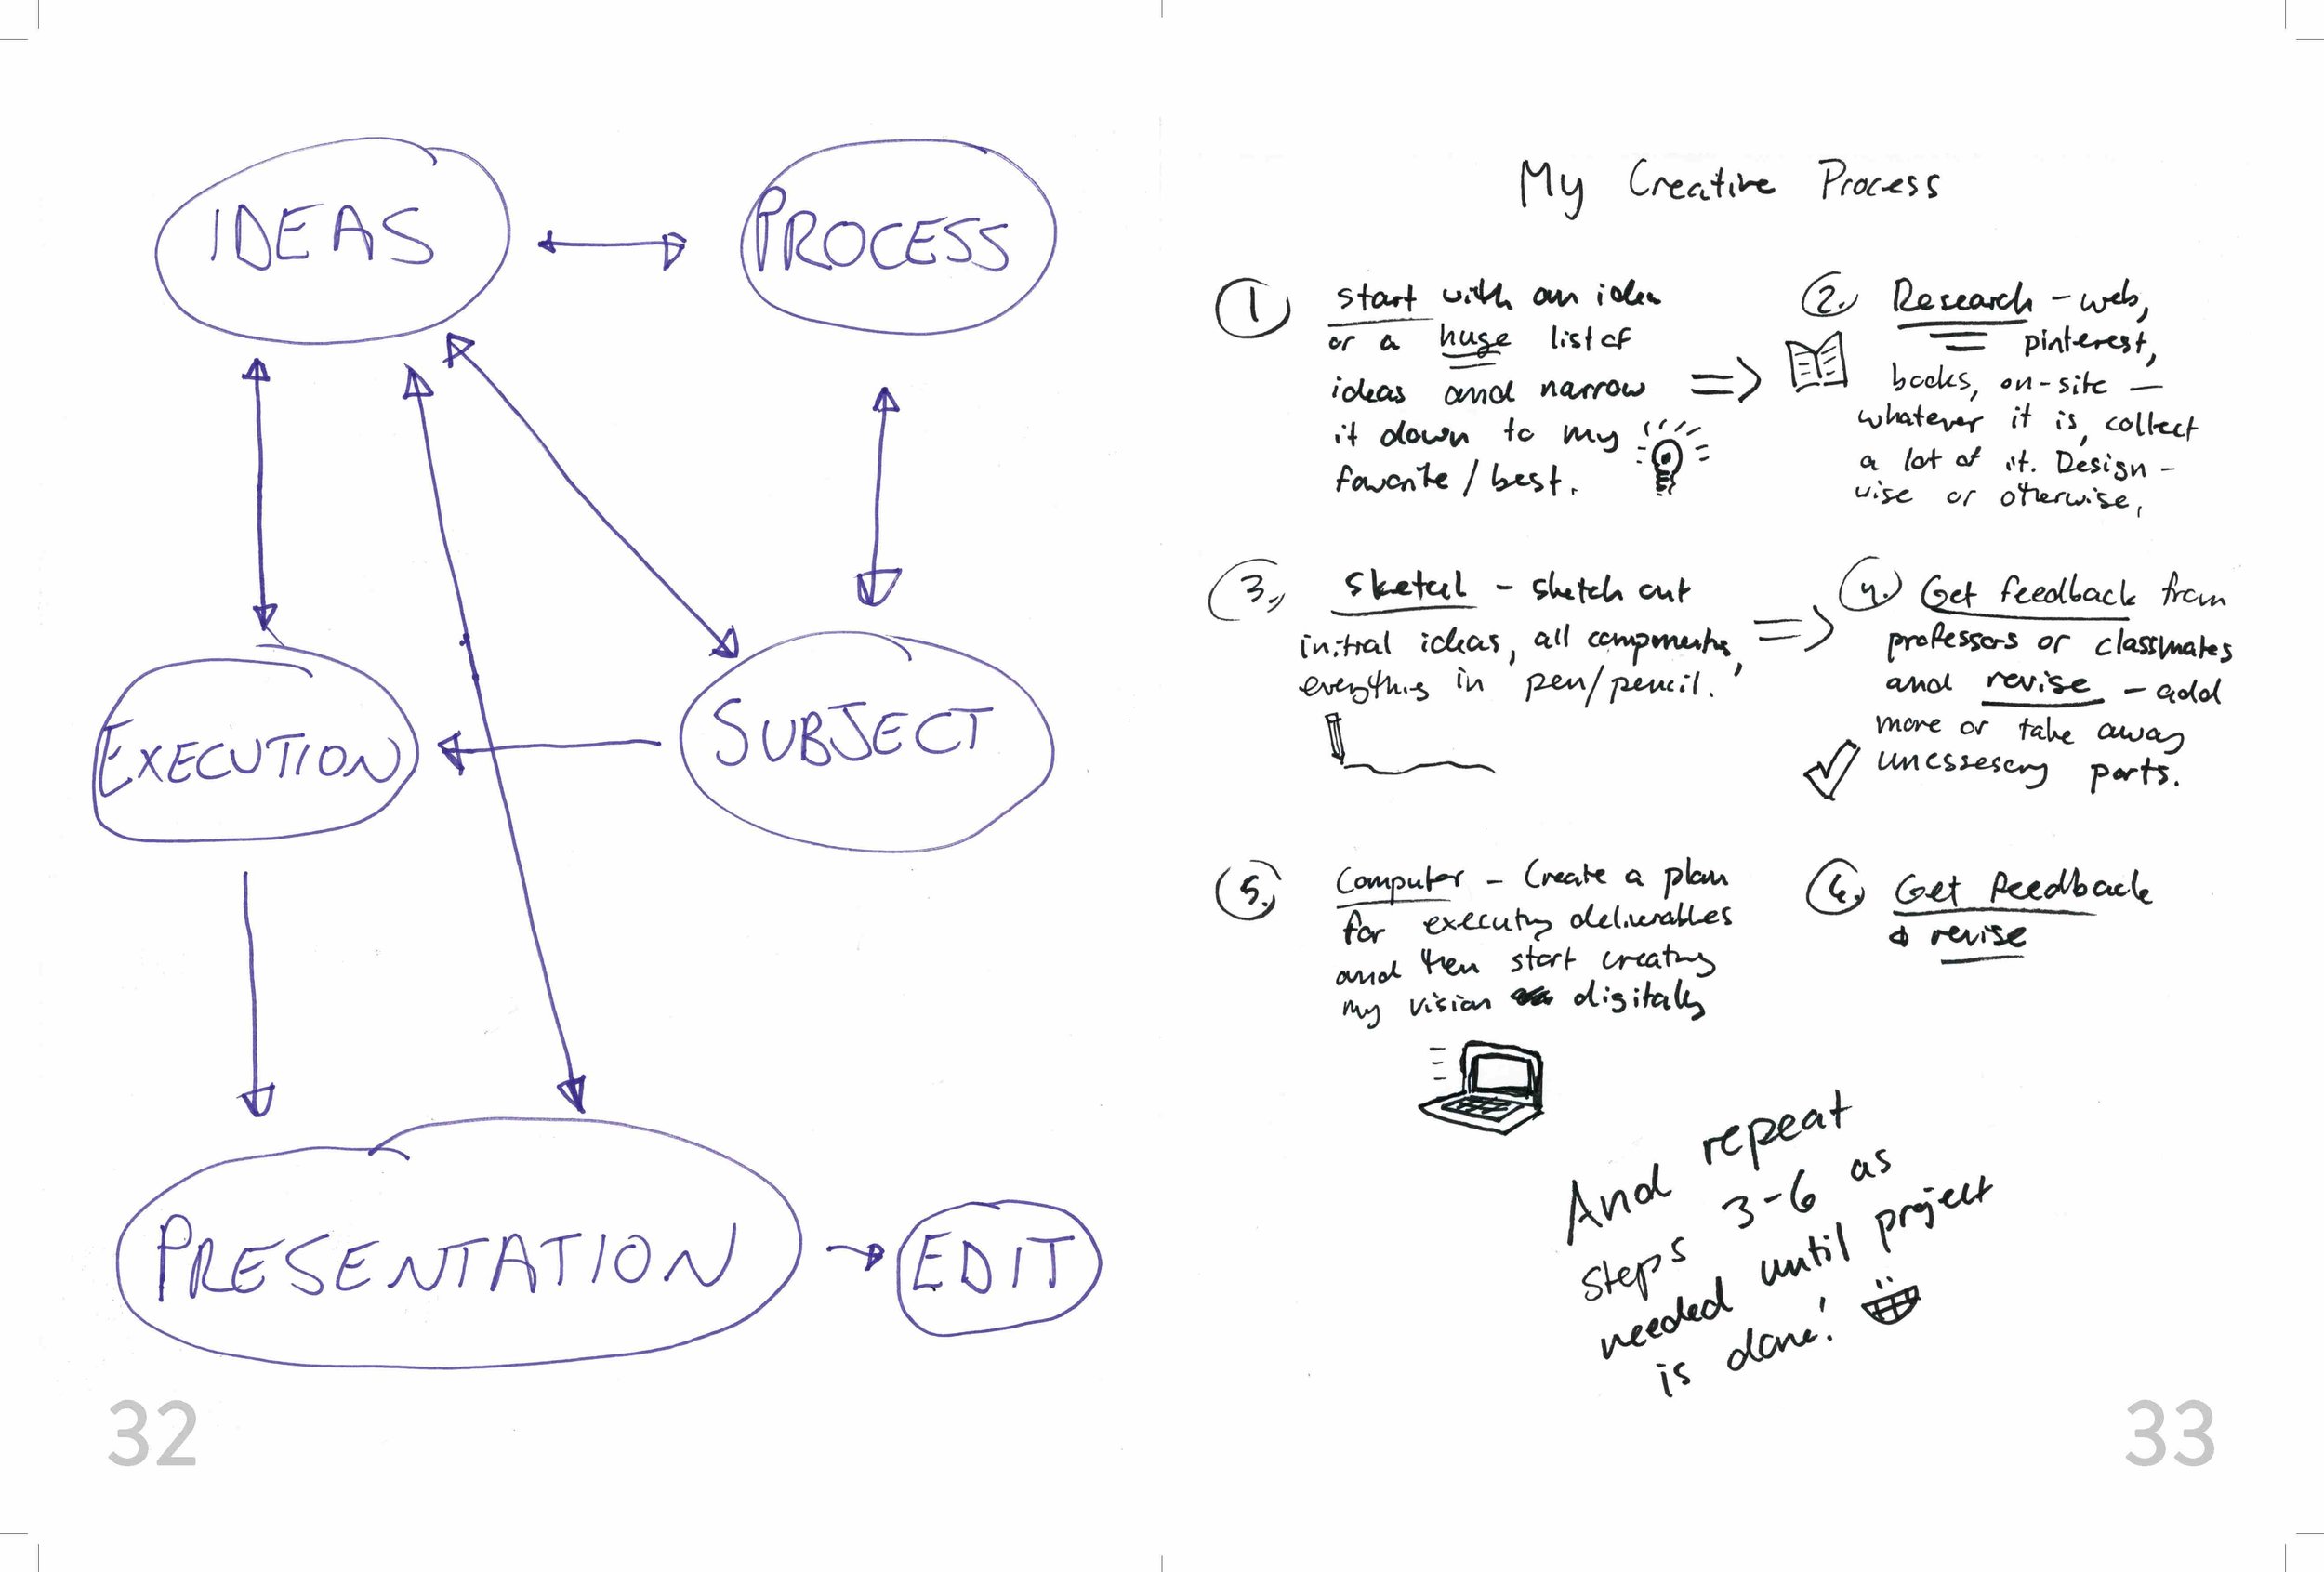 IDEAS
PROCESS
EXECUTION
SUBJECT
PRESENTATION
EDIT
32
My Creative Process
1 start with an idea
or a huge list of
ideas and narrow
it down to my
favorite / best.
2. Research - web,
pinterest,
books, on-site —
whatever it is, collect
a lot of it. Design -
wise or otherwise,
3. Sketch - sketch out
initial ideas, all components,
everything in pen/pencil.
4. Get feedback from
professors or classmates
and revise - add
more or take away
unessesery parts.
5. Computer - Create a plan
for executing deliverables
and then start creating
my vision digitally
6. Get feedback
& revise
And repeat
steps 3-6 as
needed until project
is done!
33